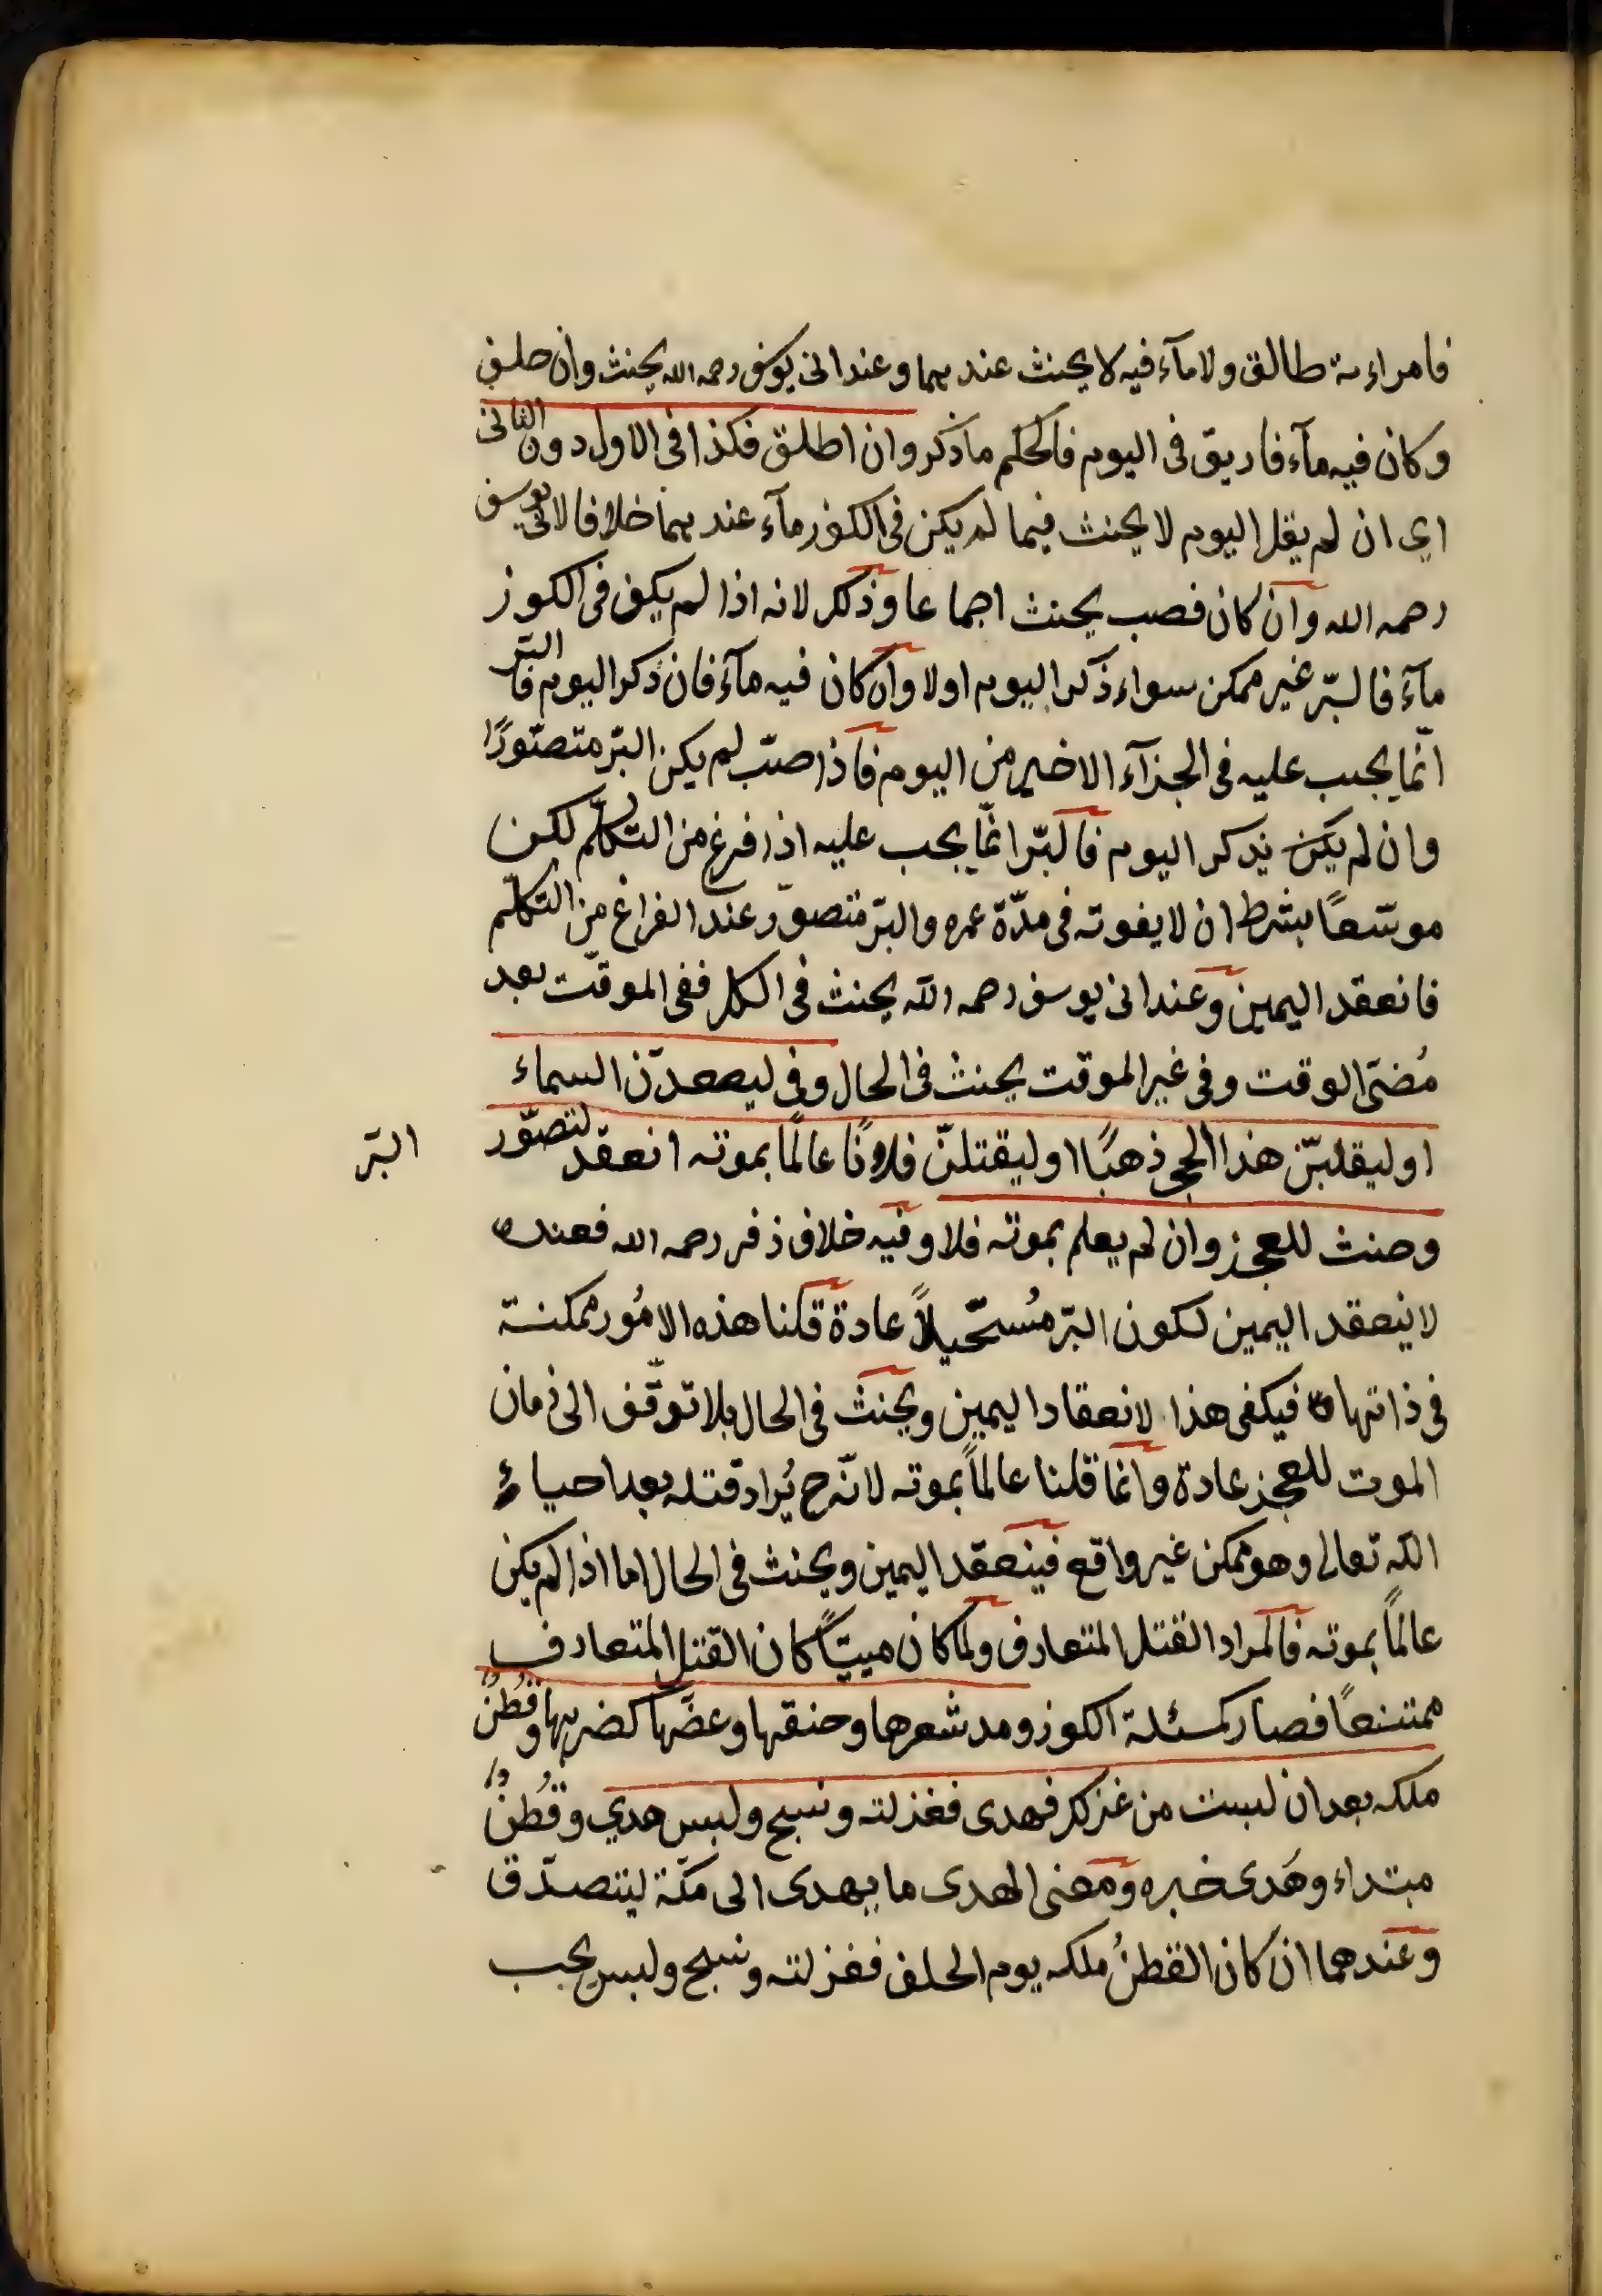 فامراءته طالق ولا مآء فيه لا يحنث عندهما وعند ابى يوسف رحمه الله يحنث وان حلف
وكان فيه مآء فاريق فى اليوم فالحكم ما ذكر وان اطلق فكذا فى الاول دون الثانى
اي ان لم يقل اليوم لا يحنث فيما لم يكن فى الكوز مآء عندهما خلافا لابى يوسف
رحمه الله وان كان فصب يحنث اجماعا وذلك لانه اذا لم يكن فى الكوز
مآء فالبرّ غير ممكن سواء ذكر اليوم اولا وان كان فيه مآء فان ذكر اليوم فالبرّ
انّما يجب عليه فى الجزآء الاخير من اليوم فاذا صبّ لم يكن البرّ متصوّرًا
وان لم يكن يذكر اليوم فالبرّ انّما يجب عليه اذا فرغ من التكلّم لكن
موسّعًا بشرط ان لا يفوته فى مدّة عمره والبرّ متصوّر عند الفراغ من التكلّم
فانعقد اليمين وعند ابى يوسف رحمه الله يحنث فى الكل ففى الموقّت بعد
مُضىّ الوقت وفى غير الموقت يحنث فى الحال وفى ليصعدنّ السماء
او ليقلبنّ هذا الحجر ذهبًا او ليقتلنّ فلانًا عالمًا بموته انعقد لتصوّر
البرّ
وحنث للعجز وان لم يعلم بموته فلا وفيه خلاف زفر رحمه الله فعنده
لا ينعقد اليمين لكون البرّ مُستحيلاً عادة قلنا هذه الامُور ممكنة
فى ذاتها فيكفى هذا لانعقاد اليمين ويحنث فى الحال بلا توقّف الى زمان
الموت للعجز عادة وانّما قلنا عالمًا بموته لانّه ح يُراد قتله بعد احياء
الله تعالى وهو ممكن غير واقع فينعقد اليمين ويحنث فى الحال اما اذا لم يكن
عالمًا بموته فالمراد القتل المتعارف ولما كان ميتًا كان القتل المتعارف
ممتنعًا فصار كمسئلة الكوز ومد شعرها وخنقها وعضّها كضربها وقُطنُ
ملكه بعد ان لبست من غزلك فهدى فغزلته ونسج ولبس هدي وقُطنُ
مبتداء وهَدى خبره ومعنى الهدى ما يهدى الى مكّة ليتصدّق
وعندهما ان كان القطنُ ملكه يوم الحلف فغزلته ونسج ولبس يجب